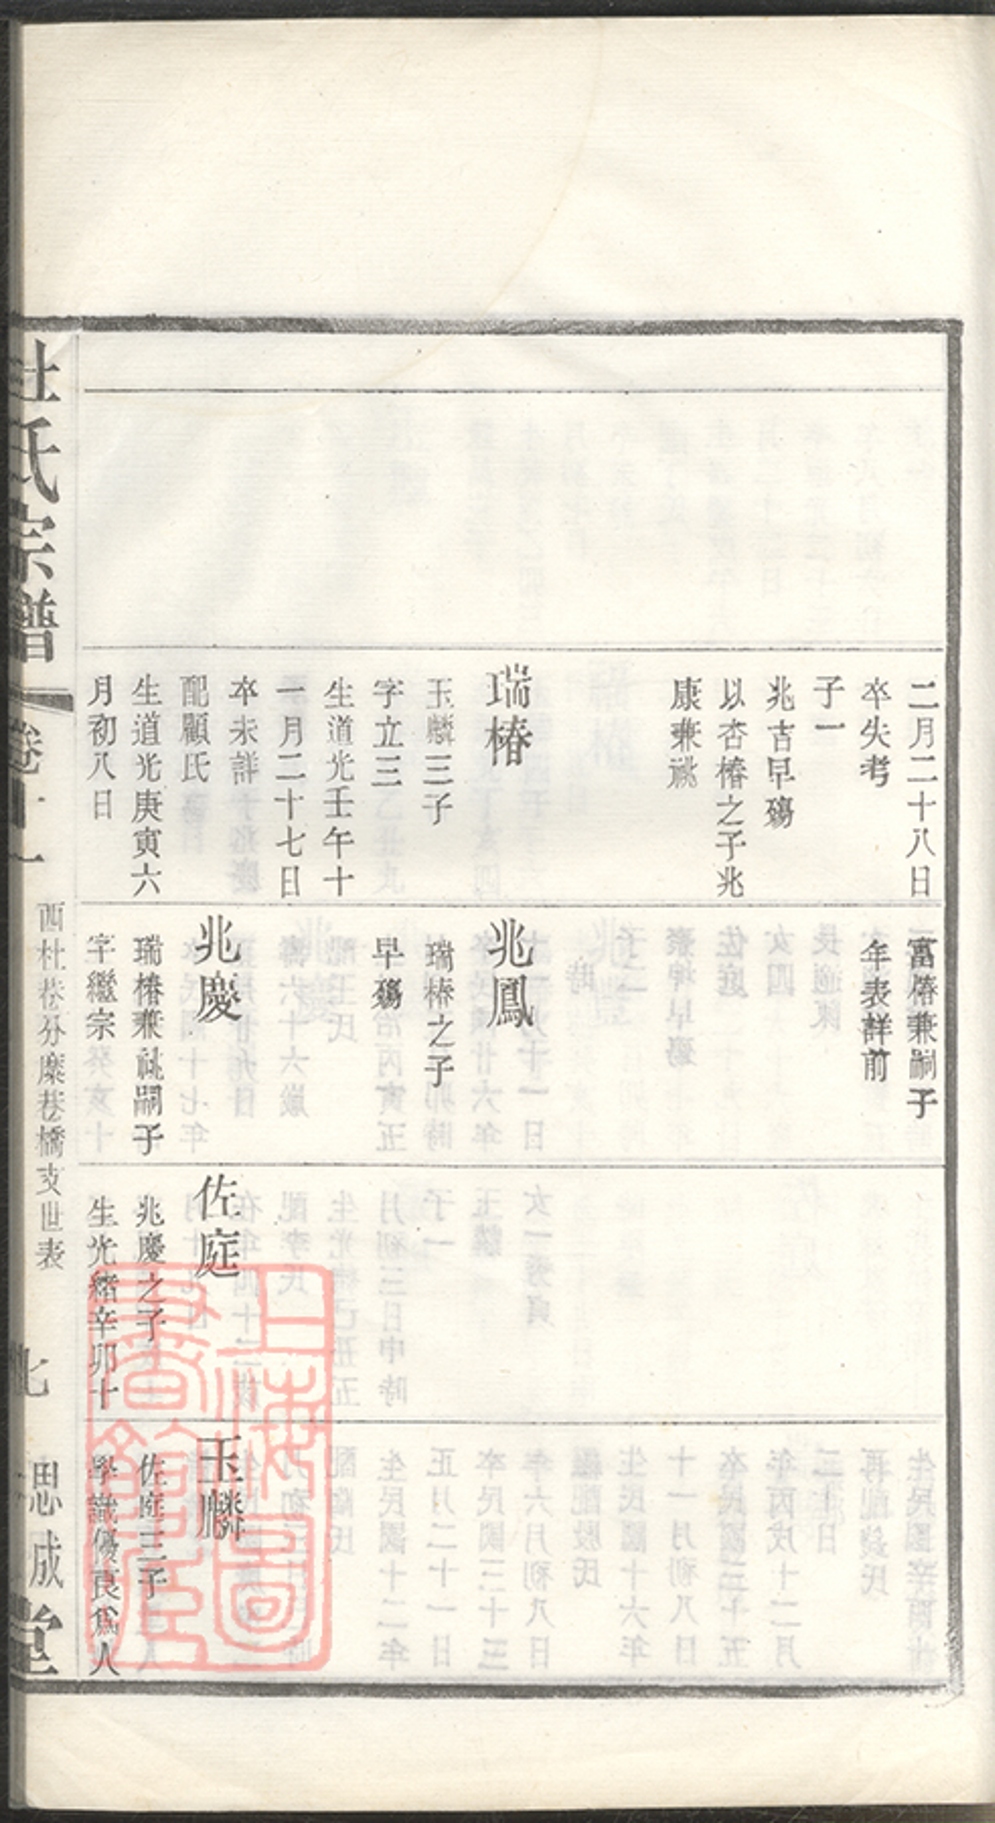 二月二十八日
卒失考
子一
兆吉早殤
以杏椿之子兆
康兼祧
瑞椿
玉麟三子
字立三
生道光壬午十
一月二十七日
卒未詳
配顧氏
生道光庚寅六
月初八日
富椿兼嗣子
年表詳前
兆鳳
瑞椿之子
早殤
兆慶
瑞椿兼祧嗣子
字繼宗
佐庭
兆慶之子
生光緒辛卯十
玉麟
佐庭三子
學識優良爲人
杜氏宗譜
卷十一
西杜巷分糜巷橋支世表
七
思成堂
上海圖書館藏